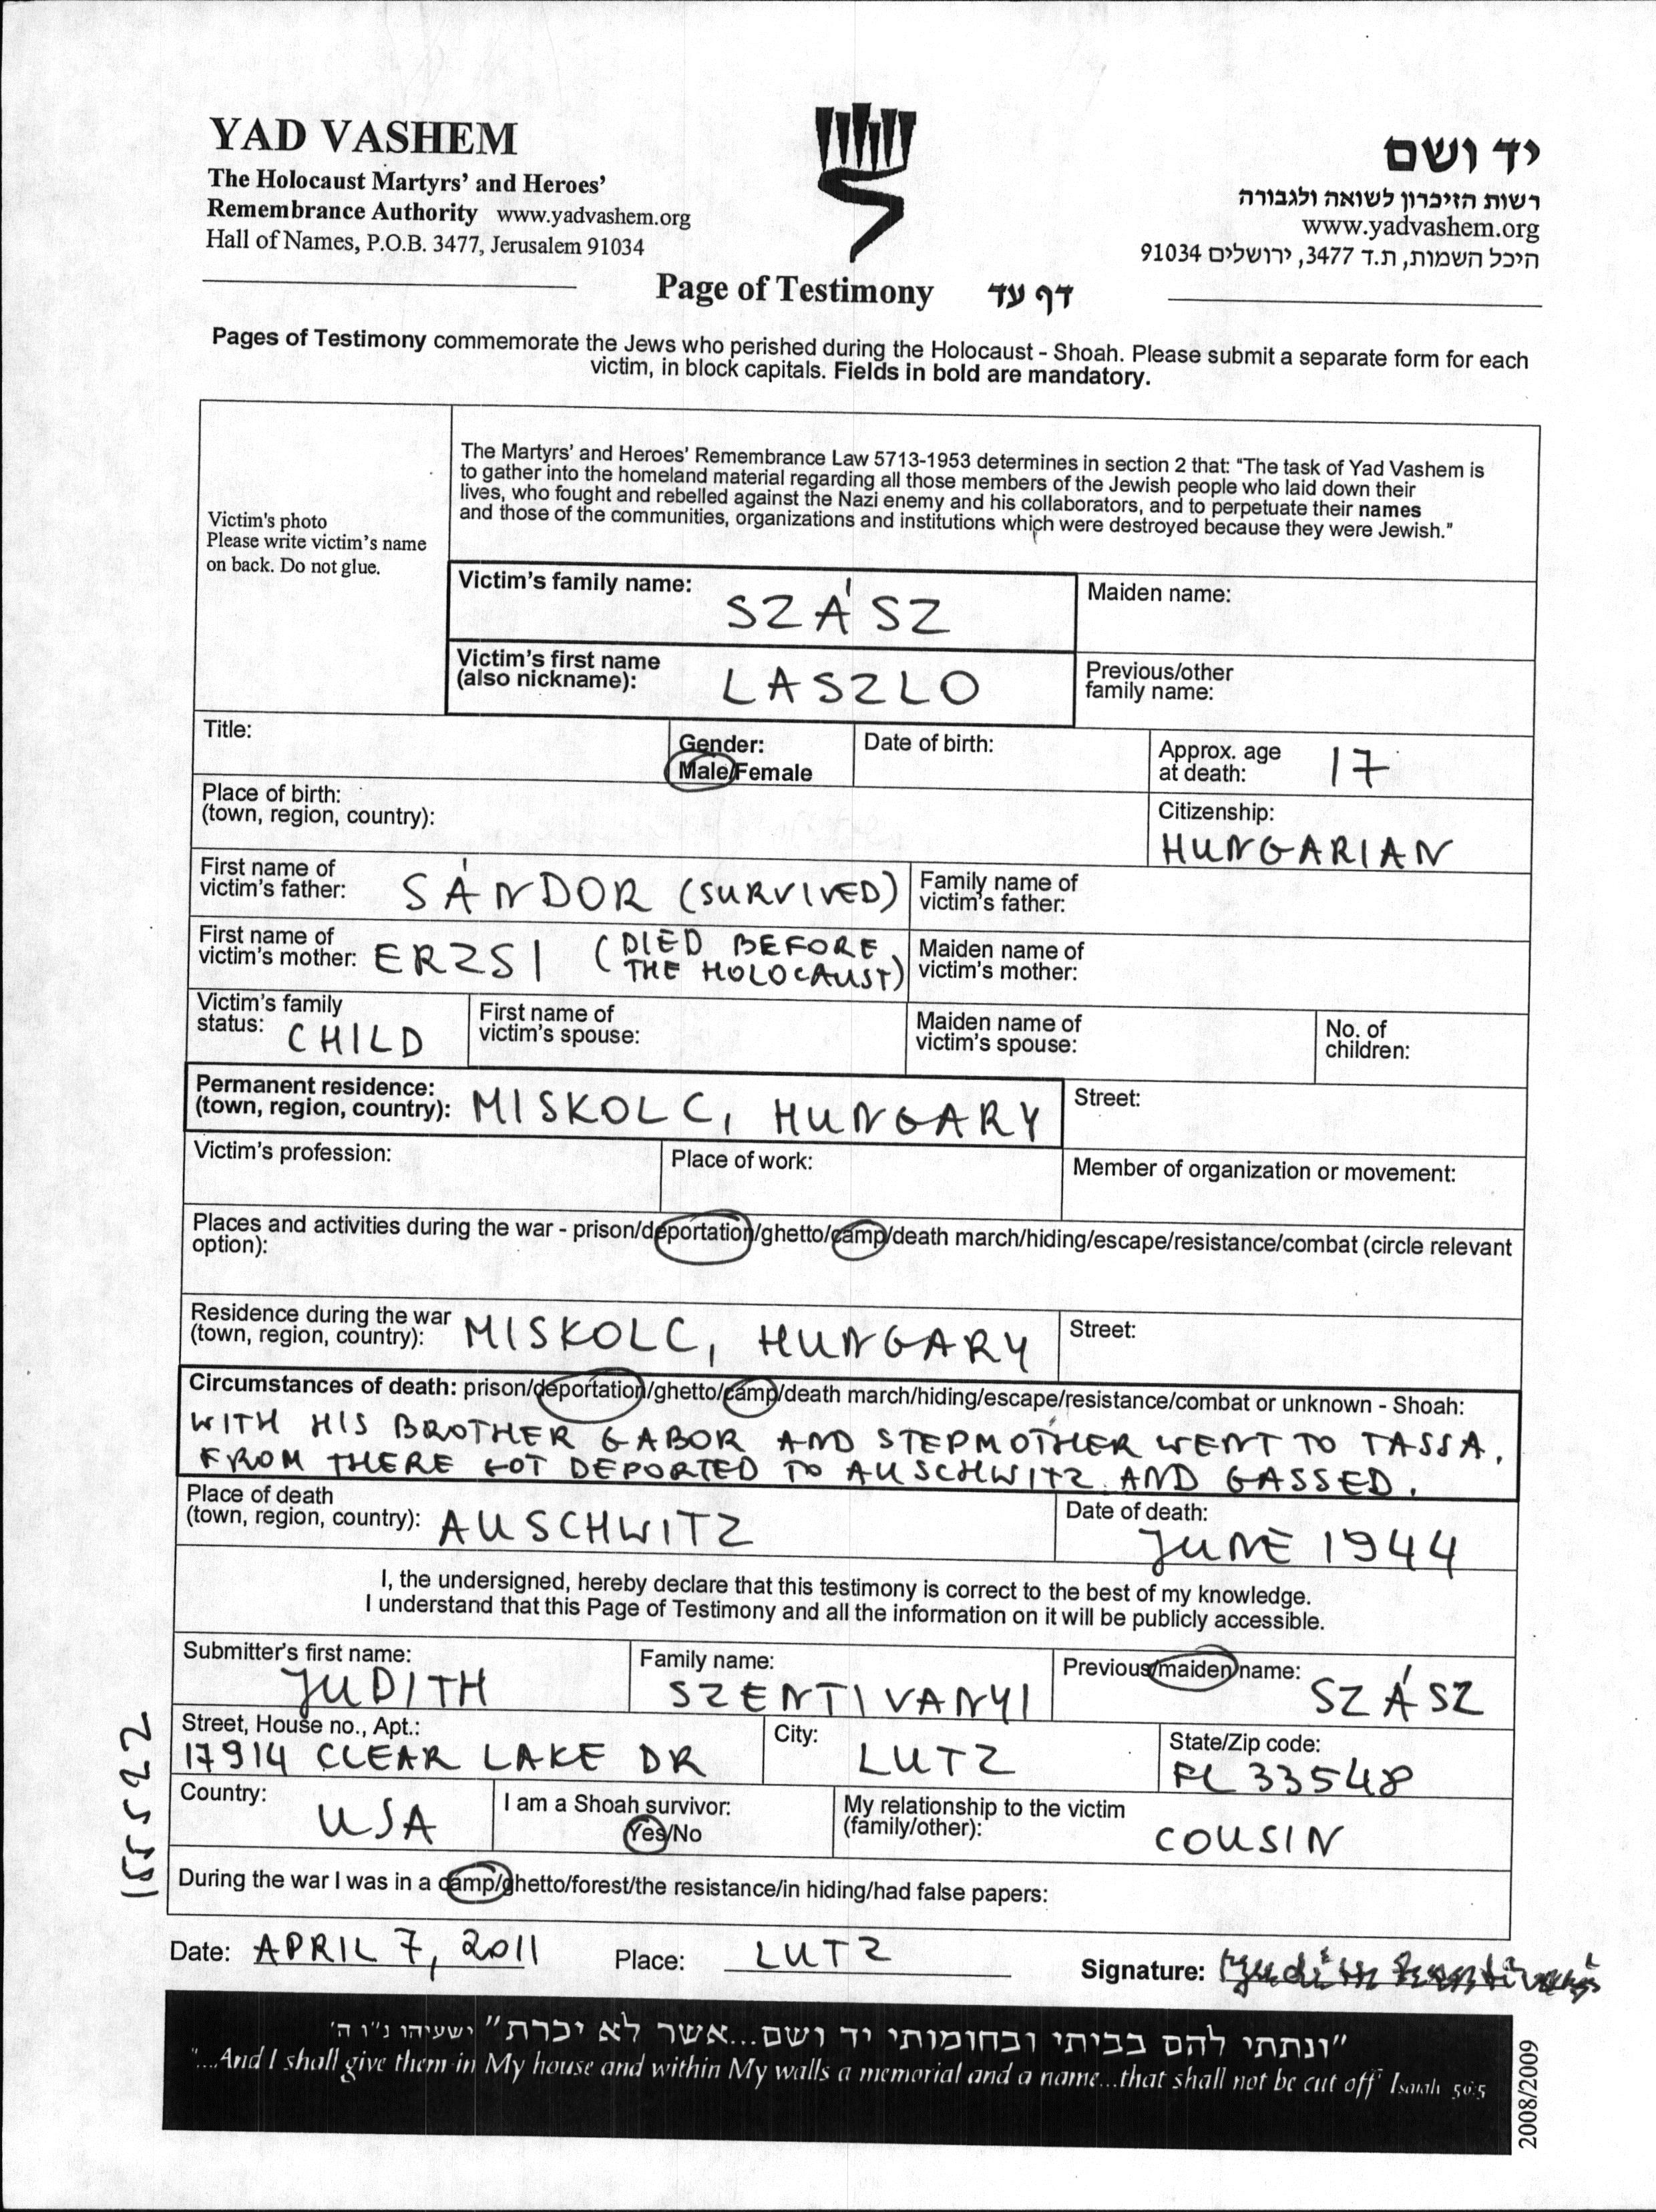 YAD VASHEM
The Holocaust Martyrs' and Heroes'
Remembrance Authority www.yadvashem.org
Hall of Names, P.O.B. 3477, Jerusalem 91034
יד ושם
רשות הזיכרון לשואה ולגבורה
www.yadvashem.org
היכל השמות, ת.ד 3477, ירושלים 91034
Page of Testimony דף עד
Pages of Testimony commemorate the Jews who perished during the Holocaust - Shoah. Please submit a separate form for each
victim, in block capitals. Fields in bold are mandatory.
Victim's photo
Please write victim's name
on back. Do not glue.
The Martyrs' and Heroes' Remembrance Law 5713-1953 determines in section 2 that: "The task of Yad Vashem is
to gather into the homeland material regarding all those members of the Jewish people who laid down their
lives, who fought and rebelled against the Nazi enemy and his collaborators, and to perpetuate their names
and those of the communities, organizations and institutions which were destroyed because they were Jewish."
Victim's family name: SZÁSZ
Maiden name:
Victim's first name
(also nickname): LASZLO
Previous/other
family name:
Title:
Gender:
Male/Female
Date of birth:
Approx. age
at death: 17
Place of birth:
(town, region, country):
Citizenship:
HUNGARIAN
First name of
victim's father: SÁNDOR (SURVIVED)
Family name of
victim's father:
First name of
victim's mother: ERZSI (DIED BEFORE
THE HOLOCAUST)
Maiden name of
victim's mother:
Victim's family
status: CHILD
First name of
victim's spouse:
Maiden name of
victim's spouse:
No. of
children:
Permanent residence:
(town, region, country): MISKOLC, HUNGARY
Street:
Victim's profession:
Place of work:
Member of organization or movement:
Places and activities during the war - prison/deportation/ghetto/camp/death march/hiding/escape/resistance/combat (circle relevant
option):
Residence during the war
(town, region, country): MISKOLC, HUNGARY
Street:
Circumstances of death: prison/deportation/ghetto/camp/death march/hiding/escape/resistance/combat or unknown - Shoah:
WITH HIS BROTHER GABOR AND STEPMOTHER WENT TO TASSA.
FROM THERE GOT DEPORTED TO AUSCHWITZ AND GASSED.
Place of death
(town, region, country): AUSCHWITZ
Date of death:
JUNE 1944
I, the undersigned, hereby declare that this testimony is correct to the best of my knowledge.
I understand that this Page of Testimony and all the information on it will be publicly accessible.
Submitter's first name:
JUDITH
Family name:
SZENTIVANYI
Previous/maiden name: SZÁSZ
Street, House no., Apt.:
17914 CLEAR LAKE DR
City:
LUTZ
State/Zip code:
FL 33548
Country:
USA
I am a Shoah survivor:
Yes/No
My relationship to the victim
(family/other): COUSIN
During the war I was in a camp/ghetto/forest/the resistance/in hiding/had false papers:
155522
Date: APRIL 7, 2011 Place: LUTZ Signature: Judith Szentivanyi
"ונתתי להם בביתי ובחומותי יד ושם...אשר לא יכרת" ישעיהו נ"ו ה'
"...And I shall give them in My house and within My walls a memorial and a name...that shall not be cut off" Isaiah 56:5
2008/2009